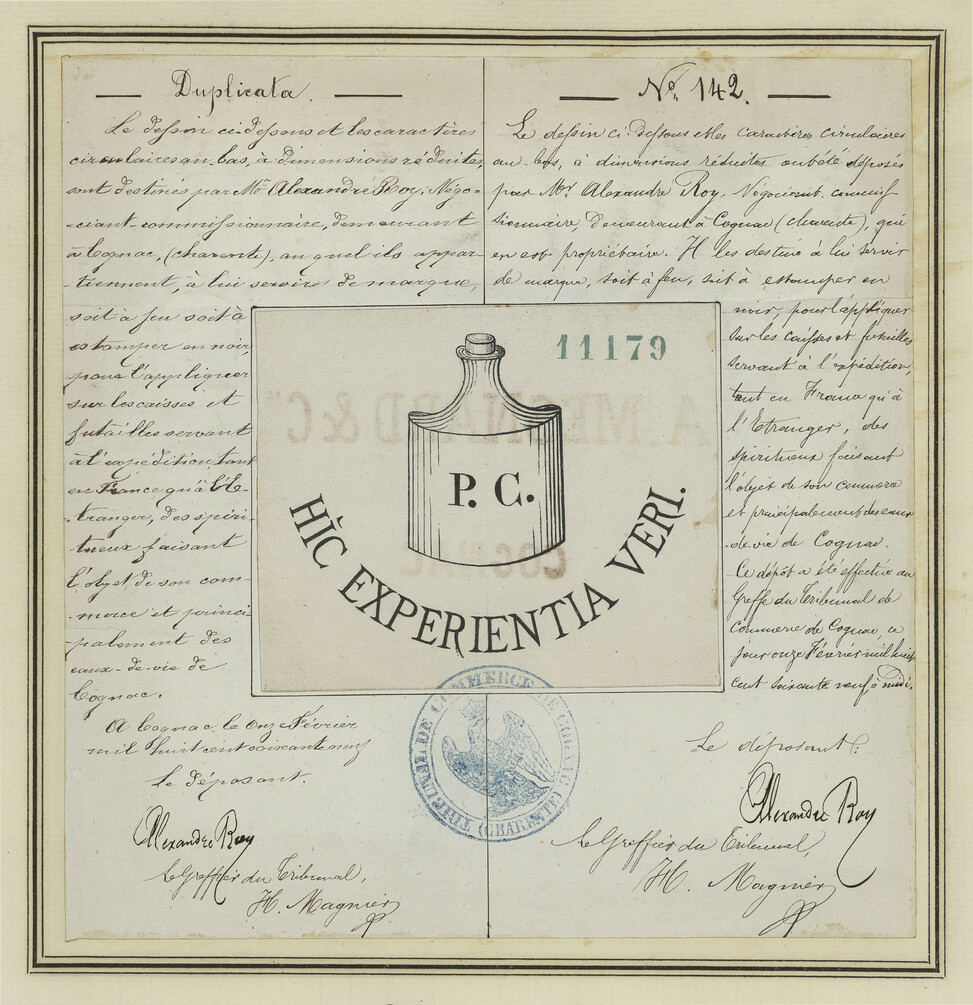 Duplicata.
Le dessin ci dessous et les caractères
circulaires au bas, à dimensions réduites,
sont destinés par Mr Alexandre Roy, Négo-
-ciant-commissionnaire, demeurant
à Cognac, (charente), auquel ils appar-
-tiennent, à lui servir de marque,
soit à feu soit à
estamper en noir,
pour l'appliquer
sur les caisses et
futailles servant
à l'expédition, tant
en France qu'à l'E-
-tranger, des spiri-
-tueux faisant
l'objet de son com-
-merce et princi-
-palement des
eaux-de-vie de
Cognac.
A Cognac le onze Février
mil huit cent soixante neuf
Le déposant.
Alexandre Roy
Le Greffier du Tribunal,
H. Magnier
No. 142.
Le dessin ci dessous et les caractères circulaires
au-bas, à dimensions réduites ont été déposés
par Mr Alexandre Roy, Négociant commis-
sionnaire, demeurant à Cognac (charente), qui
en est propriétaire. Il les destine à lui servir
de marque, soit à feu, soit à estamper en
noir, pour l'appliquer
sur les caisses et futailles
servant à l'expédition
tant en France qu'à
l'Etranger, des
spiritueux faisant
l'objet de son commerce
et principalement des eaux
-de-vie de Cognac.
Ce dépôt a été effectué au
Greffe du Tribunal de
commerce de Cognac, ce
jour onze Février mil huit
cent soixante neuf à midi.
Le déposant:
Alexandre Roy
Le Greffier du Tribunal,
H. Magnier
11179
A. MESNARD & Cie
COGNAC
P. C.
HĬC EXPERIENTIA VERI.
TRIBUNAL DE COMMERCE DE COGNAC
(CHARENTE)